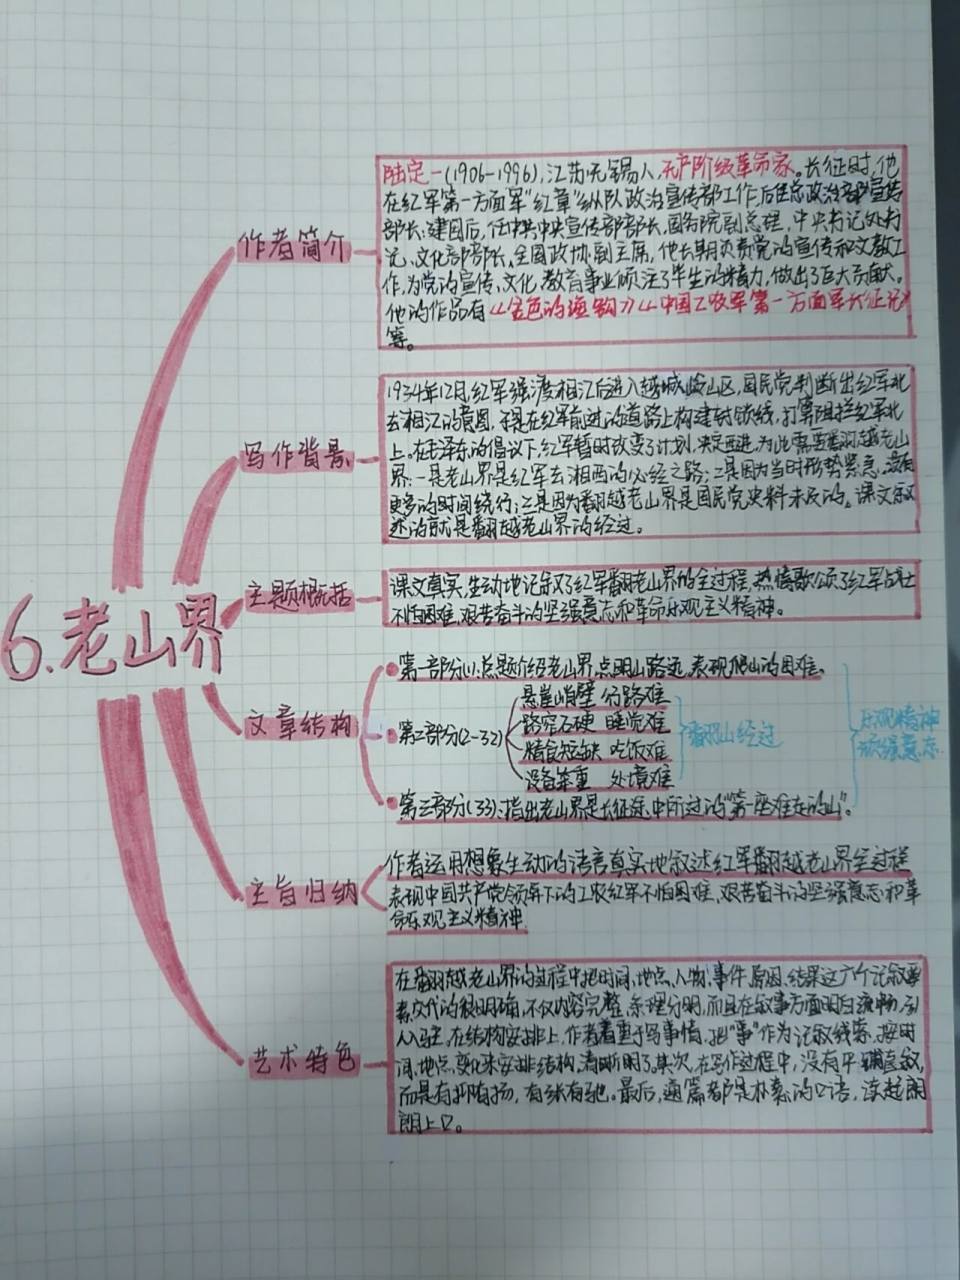 6.老山界
作者简介
陆定一(1906-1996),江苏无锡人,无产阶级革命家。长征时,他
在红军第一方面军"红章"纵队政治宣传部工作,后任总政治部宣传
部长;建国后,任中共中央宣传部部长,国务院副总理,中央书记处书
记、文化部部长、全国政协副主席,他长期负责党的宣传和文教工
作,为党的宣传、文化、教育事业倾注了毕生的精力,做出了巨大贡献。
他的作品有《金色的渔钩》《中国工农红军第一方面军长征记》
等。
写作背景
1934年12月,红军强渡湘江后进入越城岭山区,国民党判断出红军北
去湘江的意图,于是在红军前进的道路上构建封锁线,打算阻拦红军北
上。在毛泽东的倡议下,红军暂时改变了计划,决定西进,为此需要翻越老山
界:一是老山界是红军去湘西的必经之路;二是因为当时形势紧急,没有
更多的时间绕行;三是因为翻越老山界是国民党史料未及的。课文叙
述的就是翻越老山界的经过。
主题概括
课文真实、生动地记叙了红军翻老山界的全过程,热情歌颂了红军战士
不怕困难、艰苦奋斗的坚强意志和革命乐观主义精神。
文章结构
第一部分(1):总题介绍老山界,点明山路远,表现爬山的困难。
第二部分(2-32)
悬崖峭壁 行路难
路窄石硬 睡觉难
精食短缺 吃饭难
设备笨重 处境难
翻山经过
第三部分(33):指出老山界是长征途中所过的"第一座难走的山"。
乐观精神
顽强意志
主旨归纳
作者运用想象生动的语言真实地叙述红军翻越老山界经过程
表现中国共产党领导下的工农红军不怕困难、艰苦奋斗的坚强意志和革
命乐观主义精神
艺术特色
在翻越老山界的过程中把时间、地点、人物、事件、原因、结果这六个记叙要
素交代的很明确,不仅内容完整、条理分明,而且在叙事方面明白流畅,引
人入胜。在结构安排上,作者着重于写事情,把"事"作为记叙线索,按时
间、地点、变化来安排结构,清晰明了。其次,在写作过程中,没有平铺直叙,
而是有抑有扬,有张有弛。最后,通篇都是朴素的口语,读起朗
朗上口。